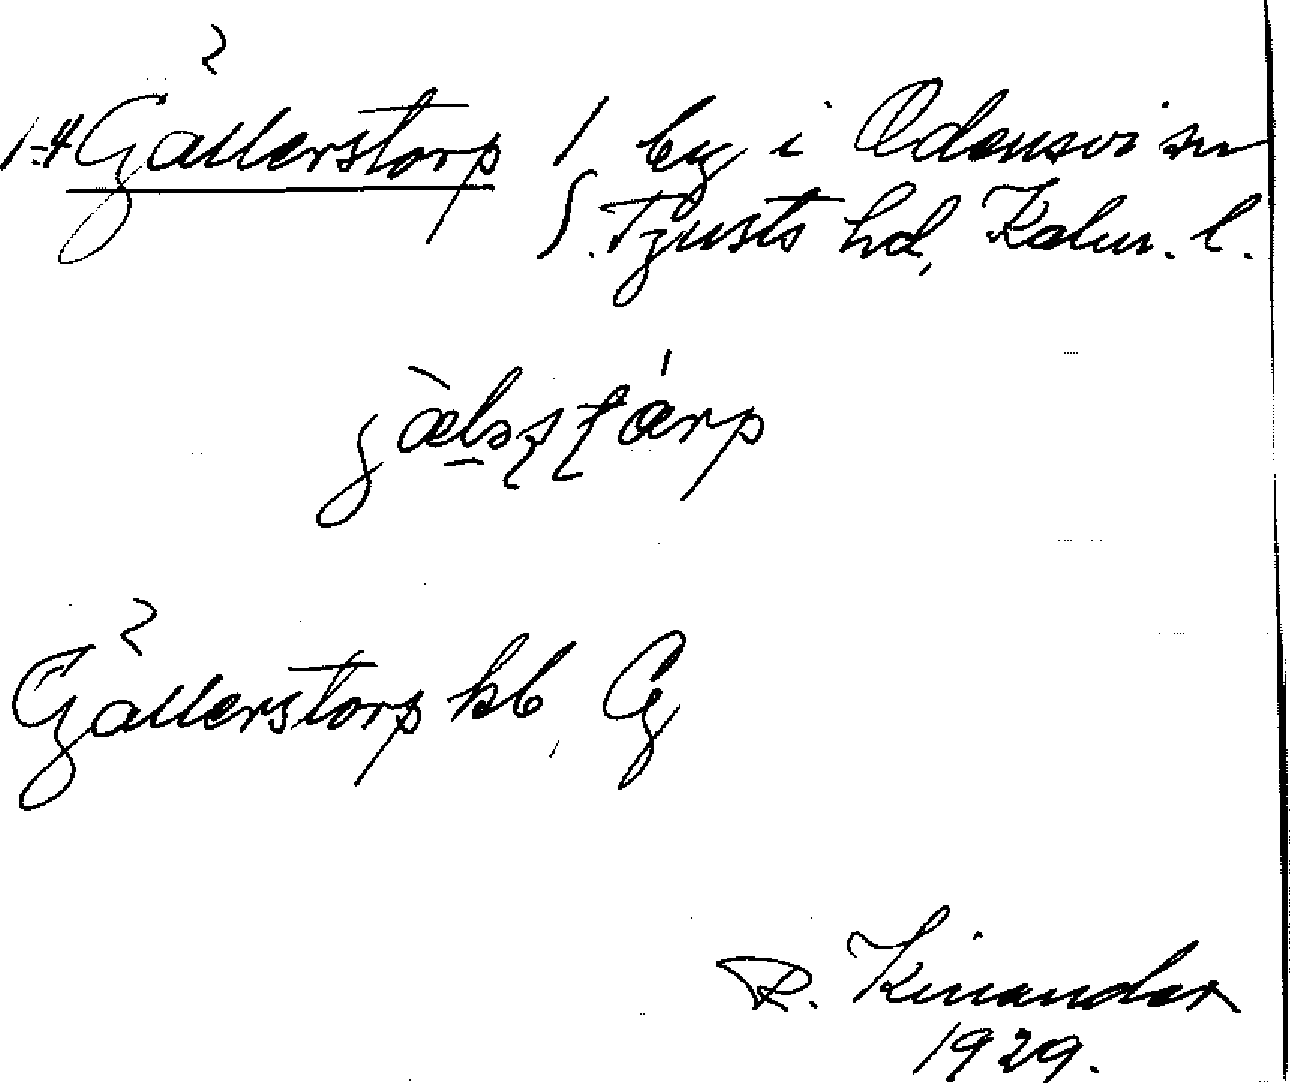 1-4 Gällerstorp / by i Odensvi sn
S. Tjusts hd, Kalm. l.
Gällerstorp kb, G
R. Kinander
1929.